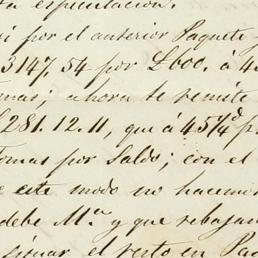 ta especulacion.
si por el anterior Paquete y
3147,54 por £600. á 4
mas; ahora se remite
281.12.11, que á 45¼d p
Tomas por Saldo; con el
e este modo no hacemos
debe M.ª y que rebajan
sionar el resto en Pa